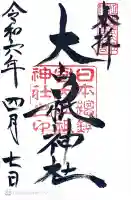 奉拝
日本總鎮
大山祇神社
神社之印
令和六年四月七日